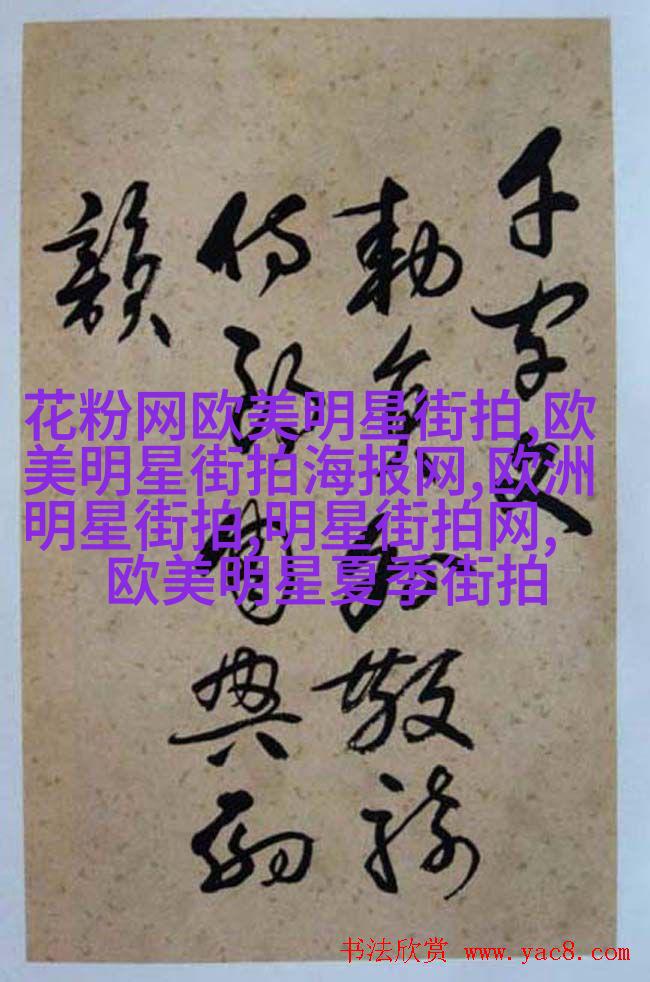 千字文
勅員外散騎
侍郎周興嗣
韻
花粉网欧美明星街拍,欧
美明星街拍海报网,欧洲
明星街拍,明星街拍网,
欧美明星夏季街拍
书法欣赏 www.yac8.com